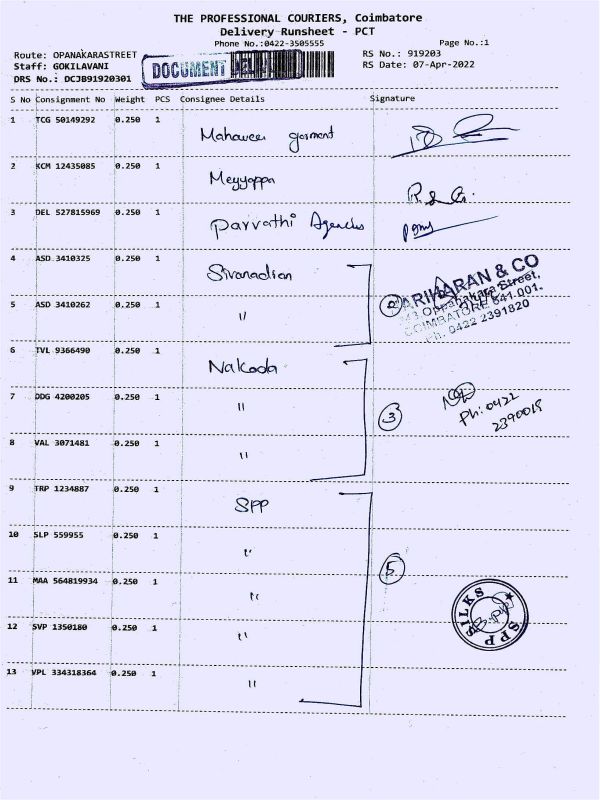 THE PROFESSIONAL COURIERS, Coimbatore
Delivery Runsheet - PCT
Phone No.:0422-3505555
Page No.:1
Route: OPANAKARASTREET
RS No.: 919203
Staff: GOKILAVANI
DOCUMENT
RS Date: 07-Apr-2022
DRS No.: DCJB91920301
S No Consignment No Weight PCS Consignee Details Signature
1 TCG 50149292 0.250 1 Mahaveer garment
2 KCM 12435085 0.250 1 Meyyappa
3 DEL 527815969 0.250 1 Parvathi Agencies
4 ASD 3410325 0.250 1 Sivanadian
5 ASD 3410262 0.250 1 "
2
ARIHARAN & CO
Oppanakara Street,
COIMBATORE 641 001.
Ph: 0422 2391820
6 TVL 9366490 0.250 1 Nakoda
7 DDG 4200205 0.250 1 "
8 VAL 3071481 0.250 1 "
3
Ph: 0422
2390019
9 TRP 1234887 0.250 1 SPP
10 SLP 559955 0.250 1 "
11 MAA 564819934 0.250 1 "
12 SVP 1350180 0.250 1 "
13 VPL 334318364 0.250 1 "
5
SPP SILKS